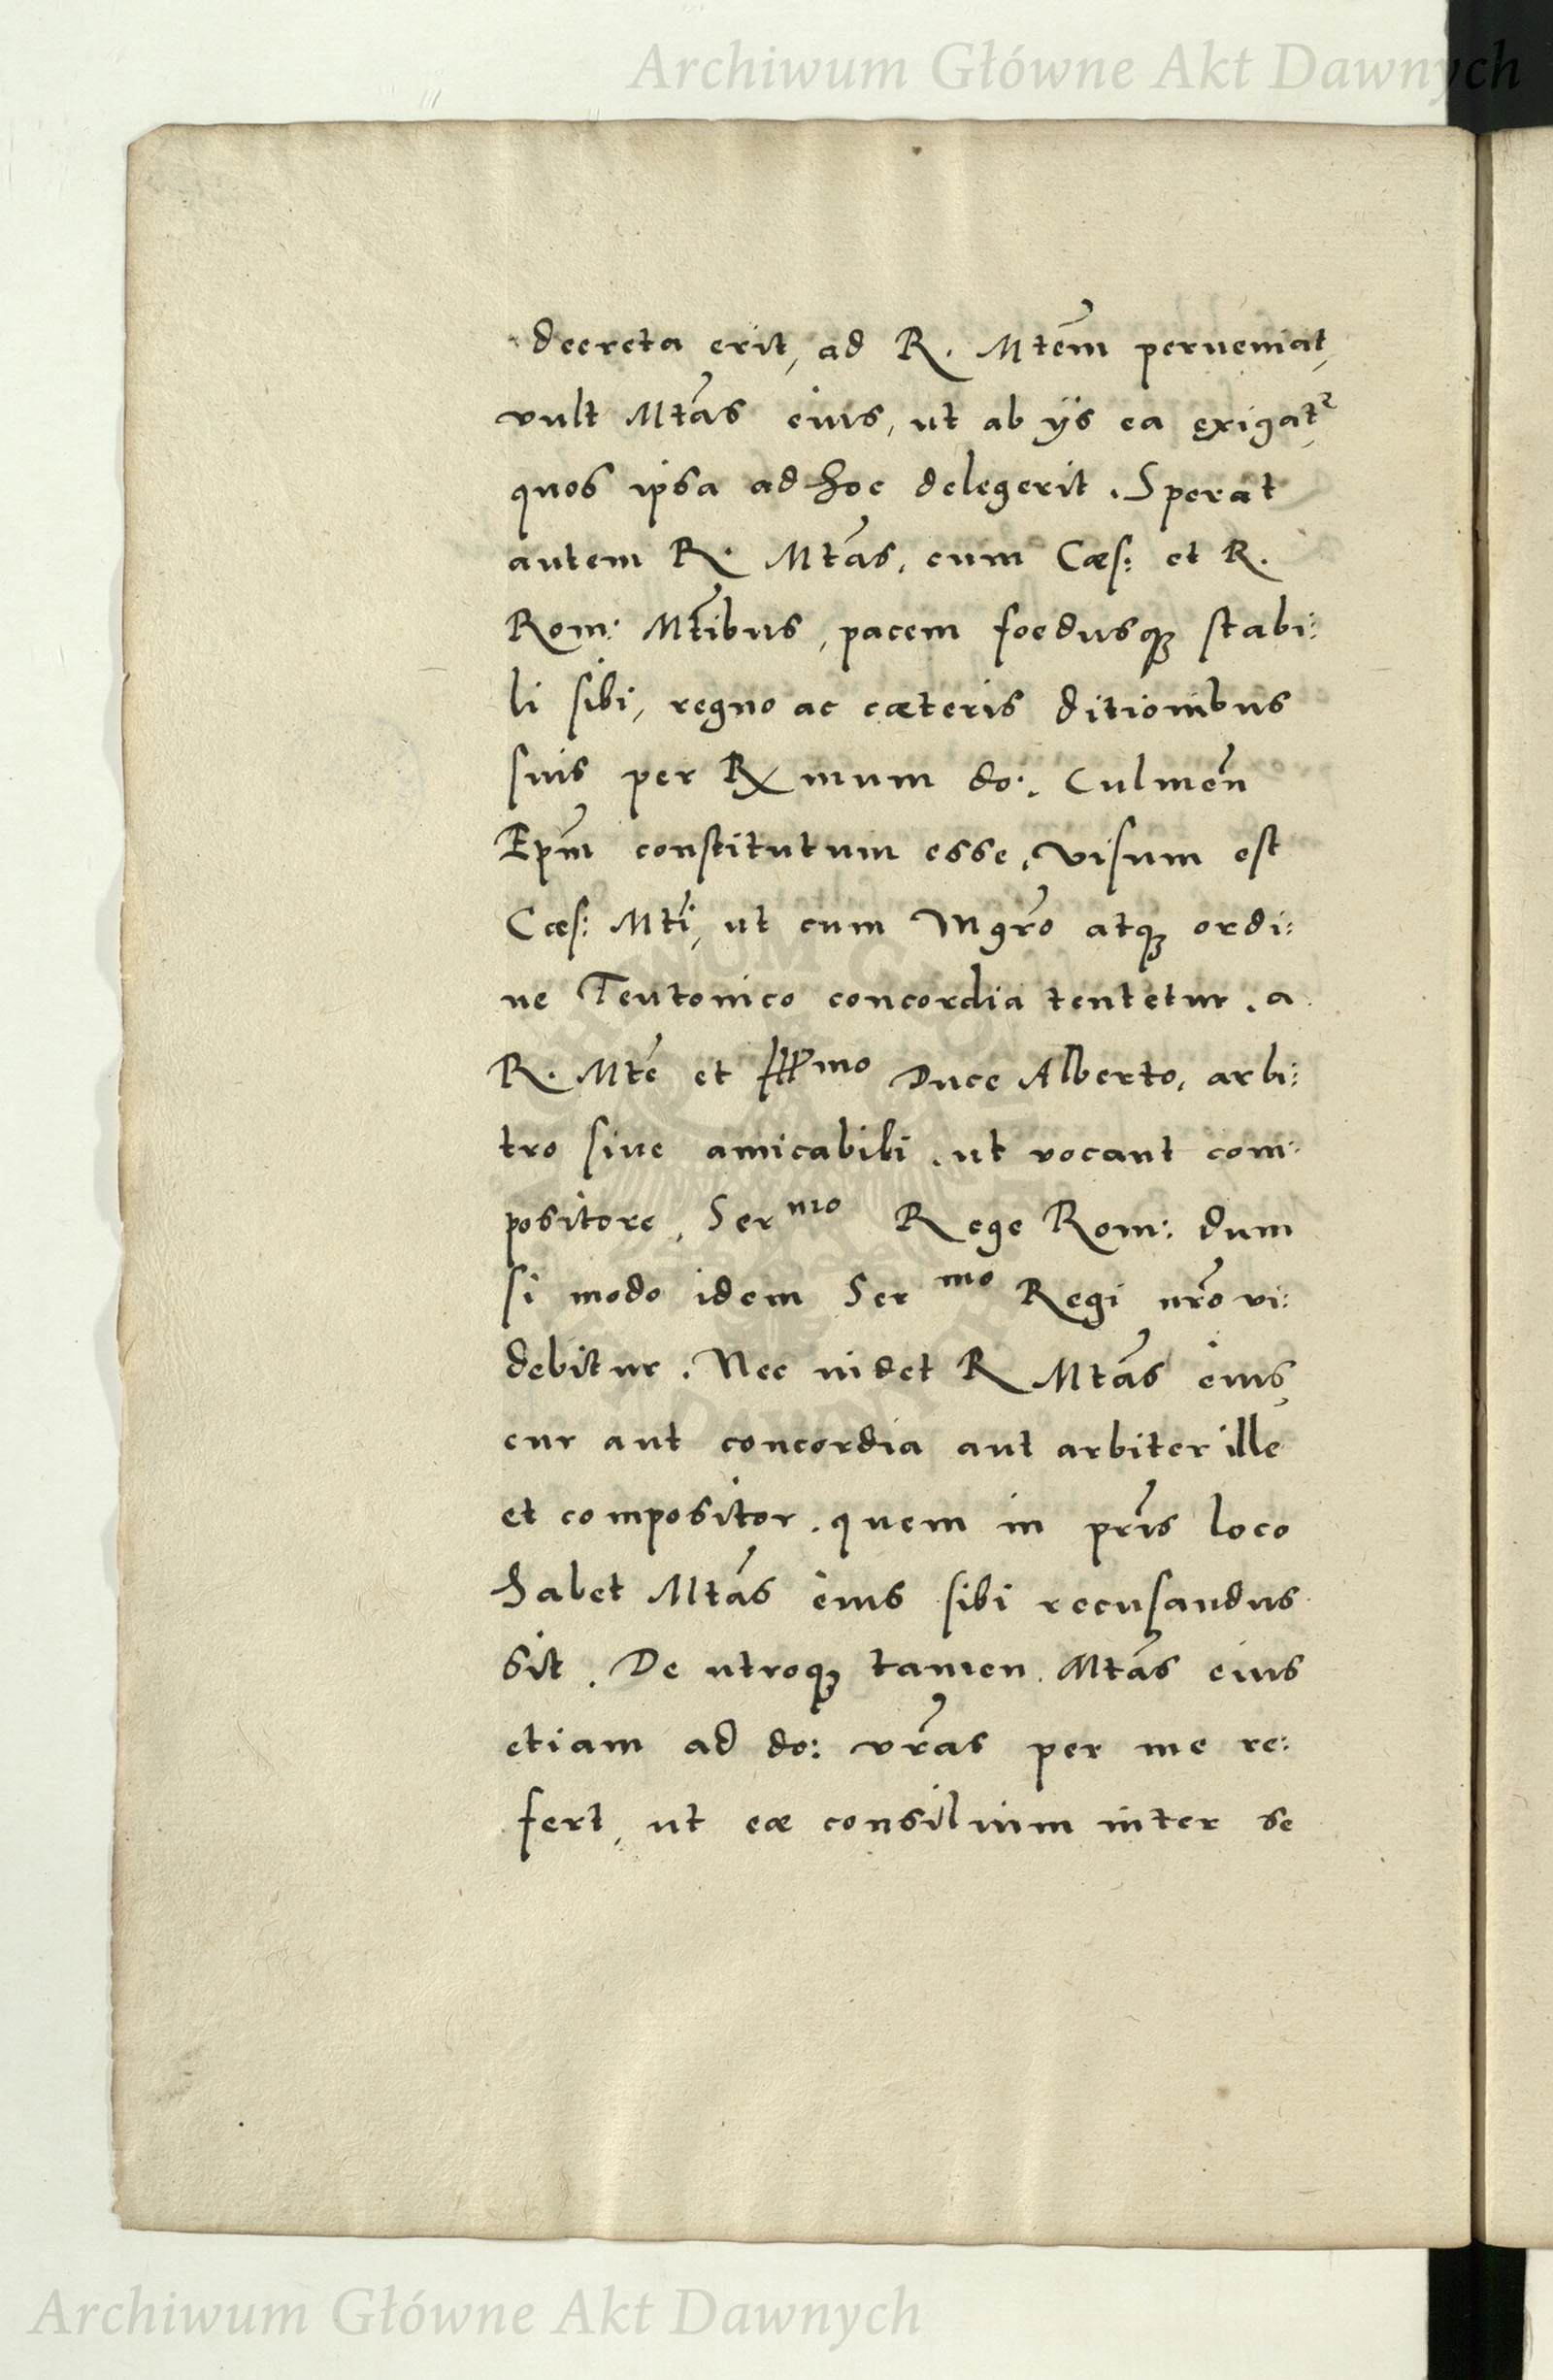 Archiwum Główne Akt Dawnych
decreta erit, ad R. Mtem perueniat,
vult Mtas eius, ut ab ijs ea exigatr
quos ipsa ad hoc delegerit. Sperat
autem R. Mtas, cum Cæs: et R.
Rom: Mtibus, pacem foedusq3 stabi:
li sibi, regno ac cæteris ditionibus
suis per Rmum do: Culmen
Epm constitutum esse, visum est
Cæs: Mti, ut cum Mgro atq3 ordi:
ne Teutonico concordia tentetur, a
R. Mte et Illmo Duce Alberto, arbi:
tro siue amicabili, ut vocant com:
positore, Sermo Rege Rom: dum
si modo idem Sermo Regi nro vi:
debitur. Nec uidet R Mtas eius,
cur aut concordia aut arbiter ille
et compositor, quem in pris loco
habet Mtas eius sibi recusandus
sit. De utroq3 tamen Mtas eius
etiam ad do: vras per me re:
fert, ut eæ consilium inter se
Archiwum Główne Akt Dawnych